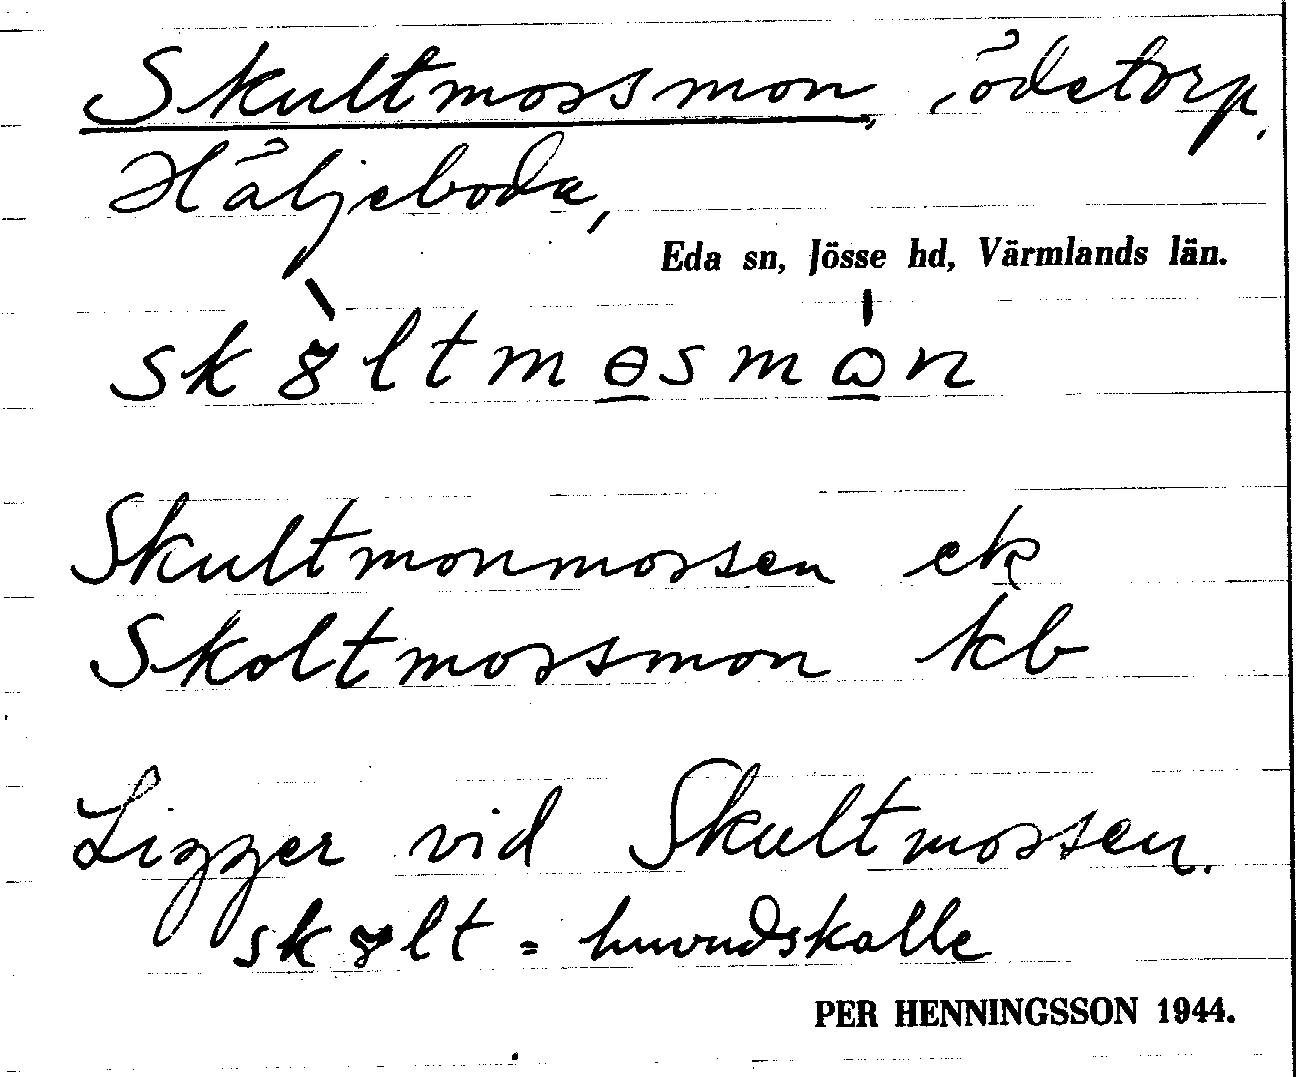 Skultmossmon, ödetorp,
Häljeboda,
Eda sn, Jösse hd, Värmlands län.
skȣ̀ltmɵsmɷ́n
Skultmonmossen ek
Skoltmossmon kb
Ligger vid Skultmossen.
skȣlt = huvudskalle
PER HENNINGSSON 1944.